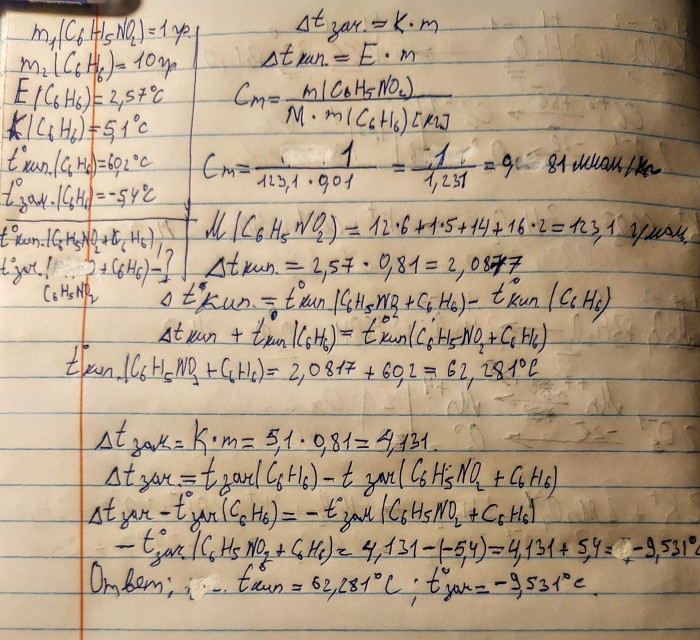 m₁(C₆H₅NO₂)=1 гр.
m₂(C₆H₆)=10гр
E(C₆H₆)=2,57°C
K(C₆H₆)=5,1°C
t°кип.(C₆H₆)=60,2°C
t°зам.(C₆H₆)=-5,4°C
t°кип.(C₆H₅NO₂+C₆H₆),
t°зам.( +C₆H₆)-?
C₆H₅NO₂
Δt зам. = K·m
Δt кип. = E·m
Cm = m(C₆H₅NO₂) / M·m(C₆H₆)[кг]
Cm = 1 / 123,1·0,01 = 1 / 1,231 = 0,81 моль/кг
M(C₆H₅NO₂) = 12·6+1·5+14+16·2=123,1 г/моль
Δt кип. = 2,57·0,81=2,0817
Δt°кип. = t°кип(C₆H₅NO₂+C₆H₆) - t°кип(C₆H₆)
Δt кип + t°кип(C₆H₆) = t°кип(C₆H₅NO₂+C₆H₆)
t°кип.(C₆H₅NO₂+C₆H₆)= 2,0817+60,2=62,281°C
Δt зам = K·m = 5,1·0,81=4,131.
Δt зам. = t зам(C₆H₆) - t зам(C₆H₅NO₂+C₆H₆)
Δt зам - t°зам(C₆H₆) = -t°зам(C₆H₅NO₂+C₆H₆)
-t°зам.(C₆H₅NO₂+C₆H₆)= 4,131-(-5,4)=4,131+5,4= -9,531°C
Ответ: t°кип = 62,281°C ; t°зам = -9,531°C.